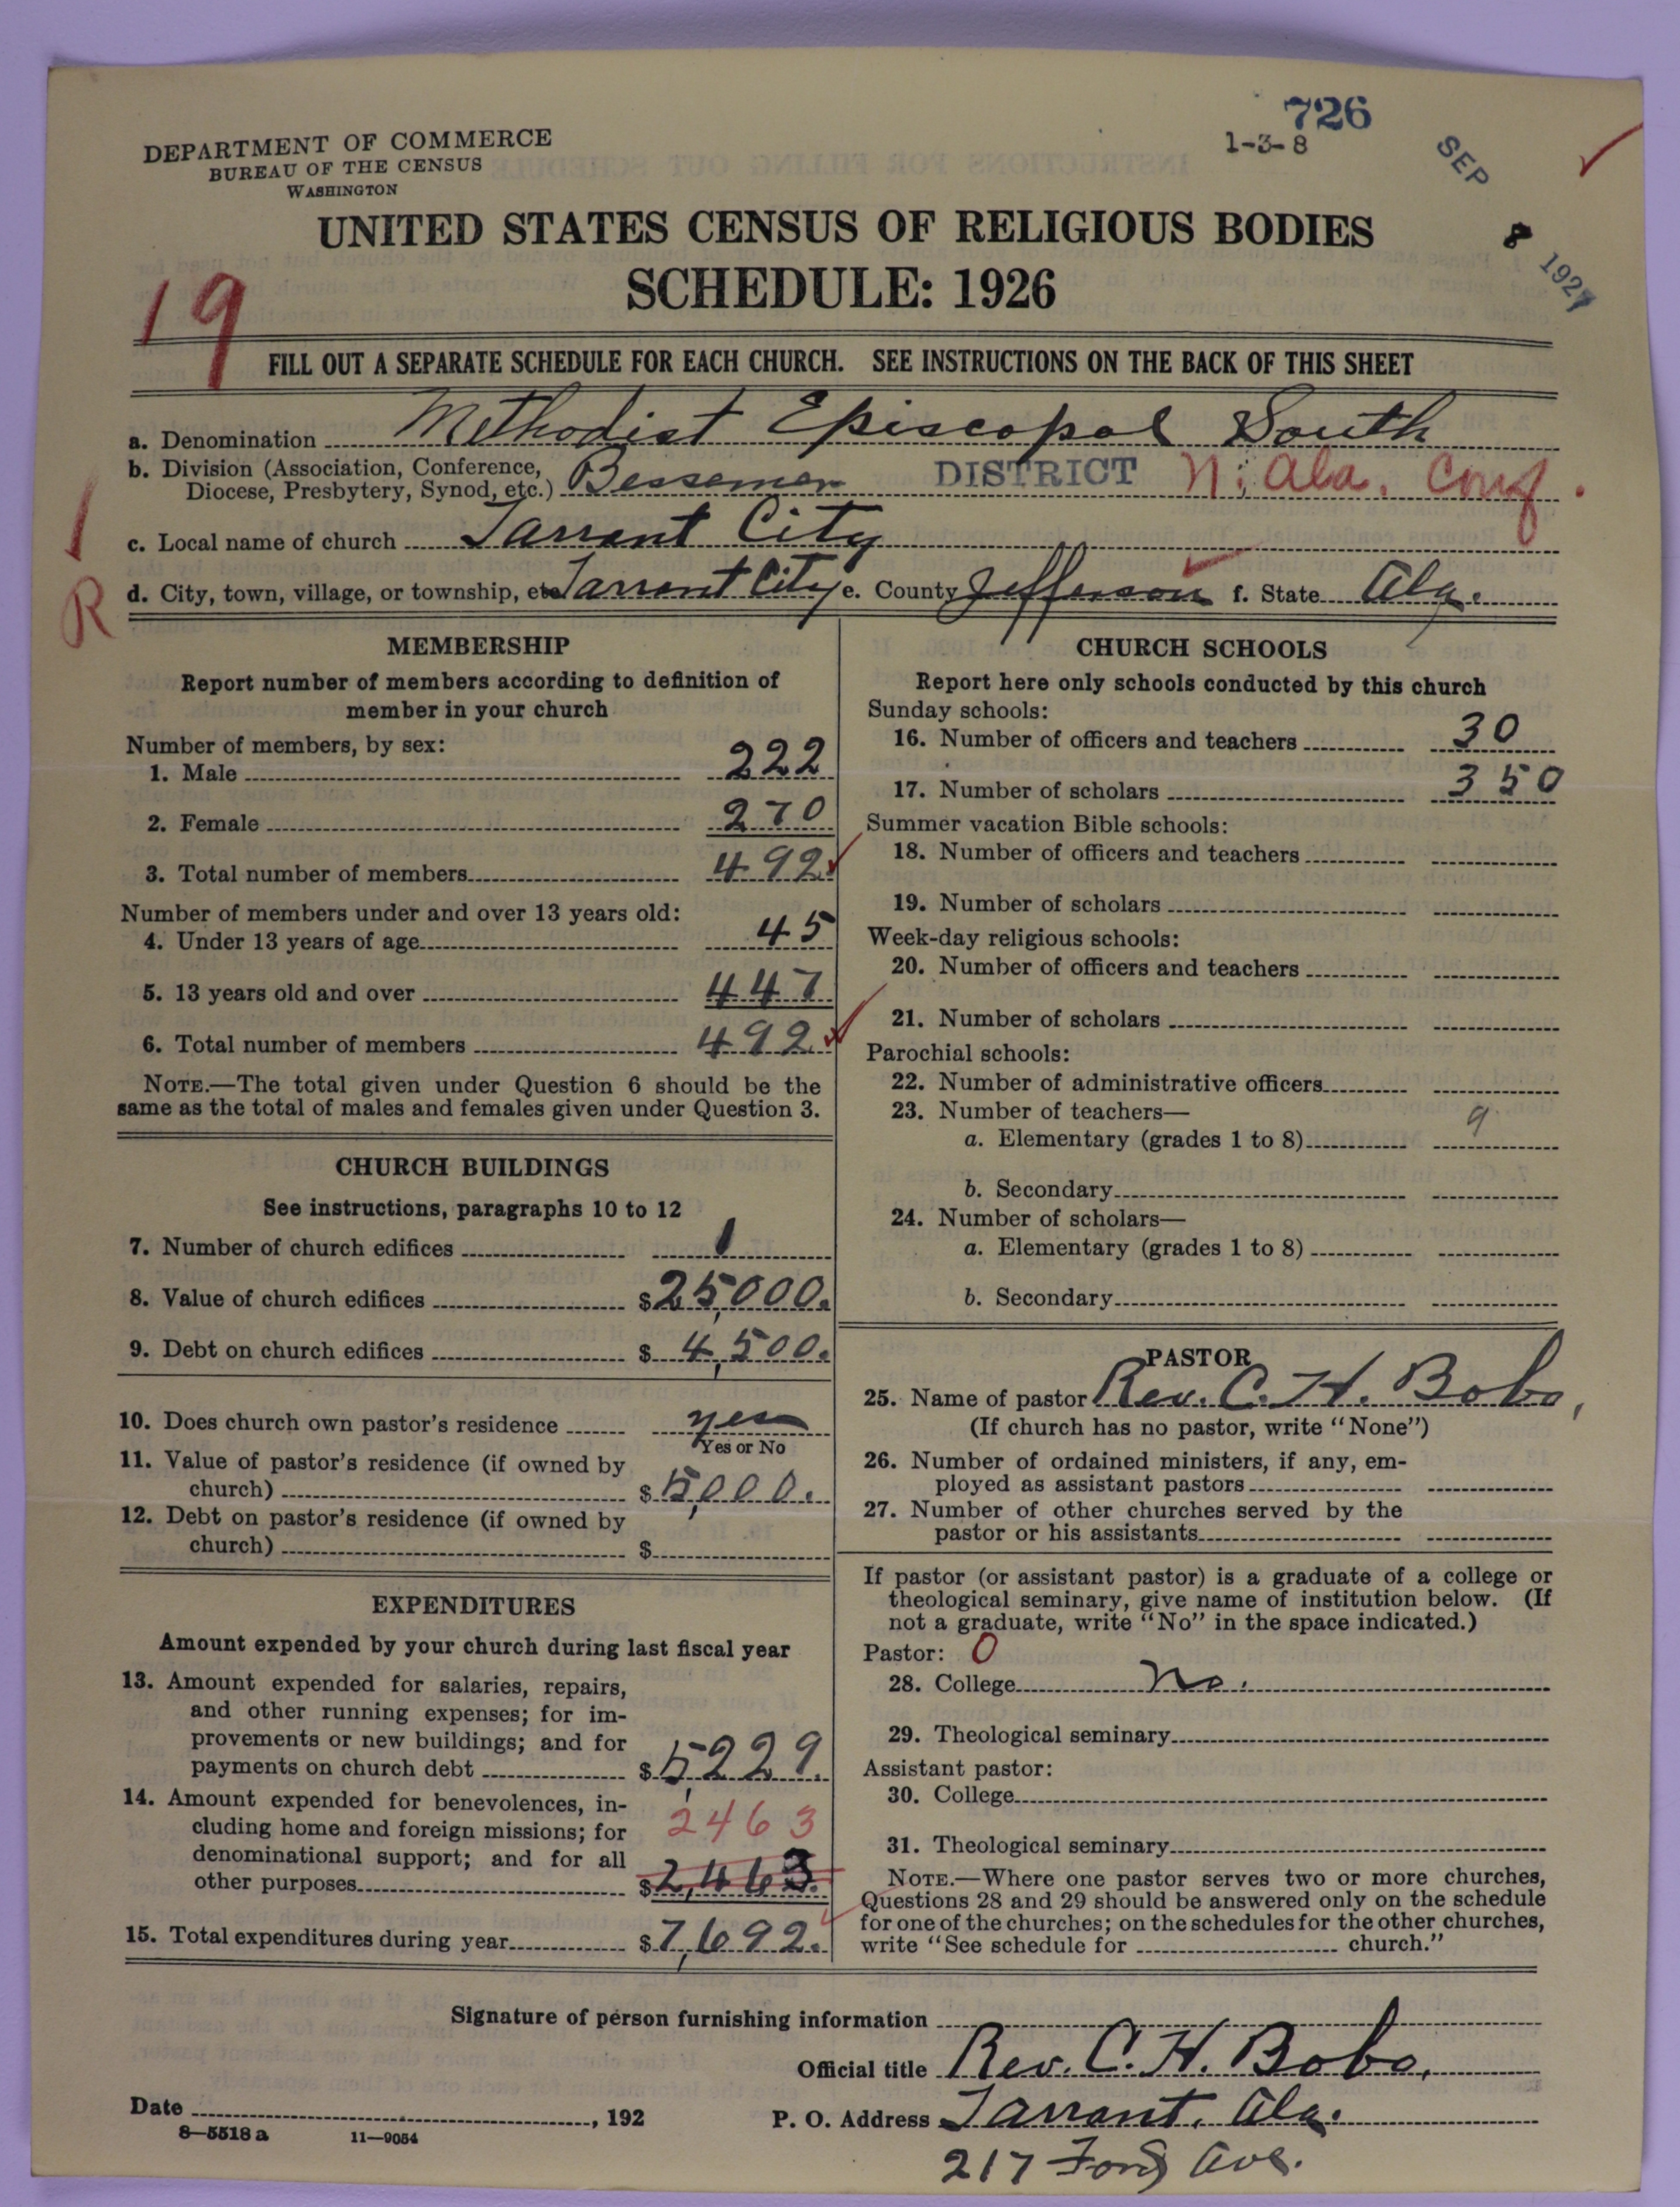 726
1-3-8
SEP 8 1927
DEPARTMENT OF COMMERCE
BUREAU OF THE CENSUS
WASHINGTON
UNITED STATES CENSUS OF RELIGIOUS BODIES
SCHEDULE: 1926
19
FILL OUT A SEPARATE SCHEDULE FOR EACH CHURCH. SEE INSTRUCTIONS ON THE BACK OF THIS SHEET
a. Denomination Methodist Episcopal South
b. Division (Association, Conference,
Diocese, Presbytery, Synod, etc.) Bessemer DISTRICT N. Ala. Conf.
c. Local name of church Tarrant City
d. City, town, village, or township, etc. Tarrant City e. County Jefferson f. State Ala.
R
MEMBERSHIP
Report number of members according to definition of
member in your church
Number of members, by sex:
1. Male 222
2. Female 270
3. Total number of members 492
Number of members under and over 13 years old:
4. Under 13 years of age 45
5. 13 years old and over 447
6. Total number of members 492
NOTE.—The total given under Question 6 should be the
same as the total of males and females given under Question 3.
CHURCH BUILDINGS
See instructions, paragraphs 10 to 12
7. Number of church edifices 1
8. Value of church edifices $25,000.
9. Debt on church edifices $4,500.
10. Does church own pastor's residence yes
Yes or No
11. Value of pastor's residence (if owned by
church) $5,000.
12. Debt on pastor's residence (if owned by
church) $
EXPENDITURES
Amount expended by your church during last fiscal year
13. Amount expended for salaries, repairs,
and other running expenses; for im-
provements or new buildings; and for
payments on church debt $5,229.
14. Amount expended for benevolences, in-
cluding home and foreign missions; for 2463
denominational support; and for all
other purposes $2,463.
15. Total expenditures during year $7,692.
CHURCH SCHOOLS
Report here only schools conducted by this church
Sunday schools:
16. Number of officers and teachers 30
17. Number of scholars 350
Summer vacation Bible schools:
18. Number of officers and teachers
19. Number of scholars
Week-day religious schools:
20. Number of officers and teachers
21. Number of scholars
Parochial schools:
22. Number of administrative officers
23. Number of teachers— 9
a. Elementary (grades 1 to 8)
b. Secondary
24. Number of scholars—
a. Elementary (grades 1 to 8)
b. Secondary
PASTOR
25. Name of pastor Rev. C. H. Bobo,
(If church has no pastor, write "None")
26. Number of ordained ministers, if any, em-
ployed as assistant pastors
27. Number of other churches served by the
pastor or his assistants
If pastor (or assistant pastor) is a graduate of a college or
theological seminary, give name of institution below. (If
not a graduate, write "No" in the space indicated.)
Pastor: 0
28. College No.
29. Theological seminary
Assistant pastor:
30. College
31. Theological seminary
NOTE.—Where one pastor serves two or more churches,
Questions 28 and 29 should be answered only on the schedule
for one of the churches; on the schedules for the other churches,
write "See schedule for church."
Signature of person furnishing information
Official title Rev. C. H. Bobo,
Date , 192
P. O. Address Tarrant, Ala.
8—5518 a 11—9054
217 Ford Ave.